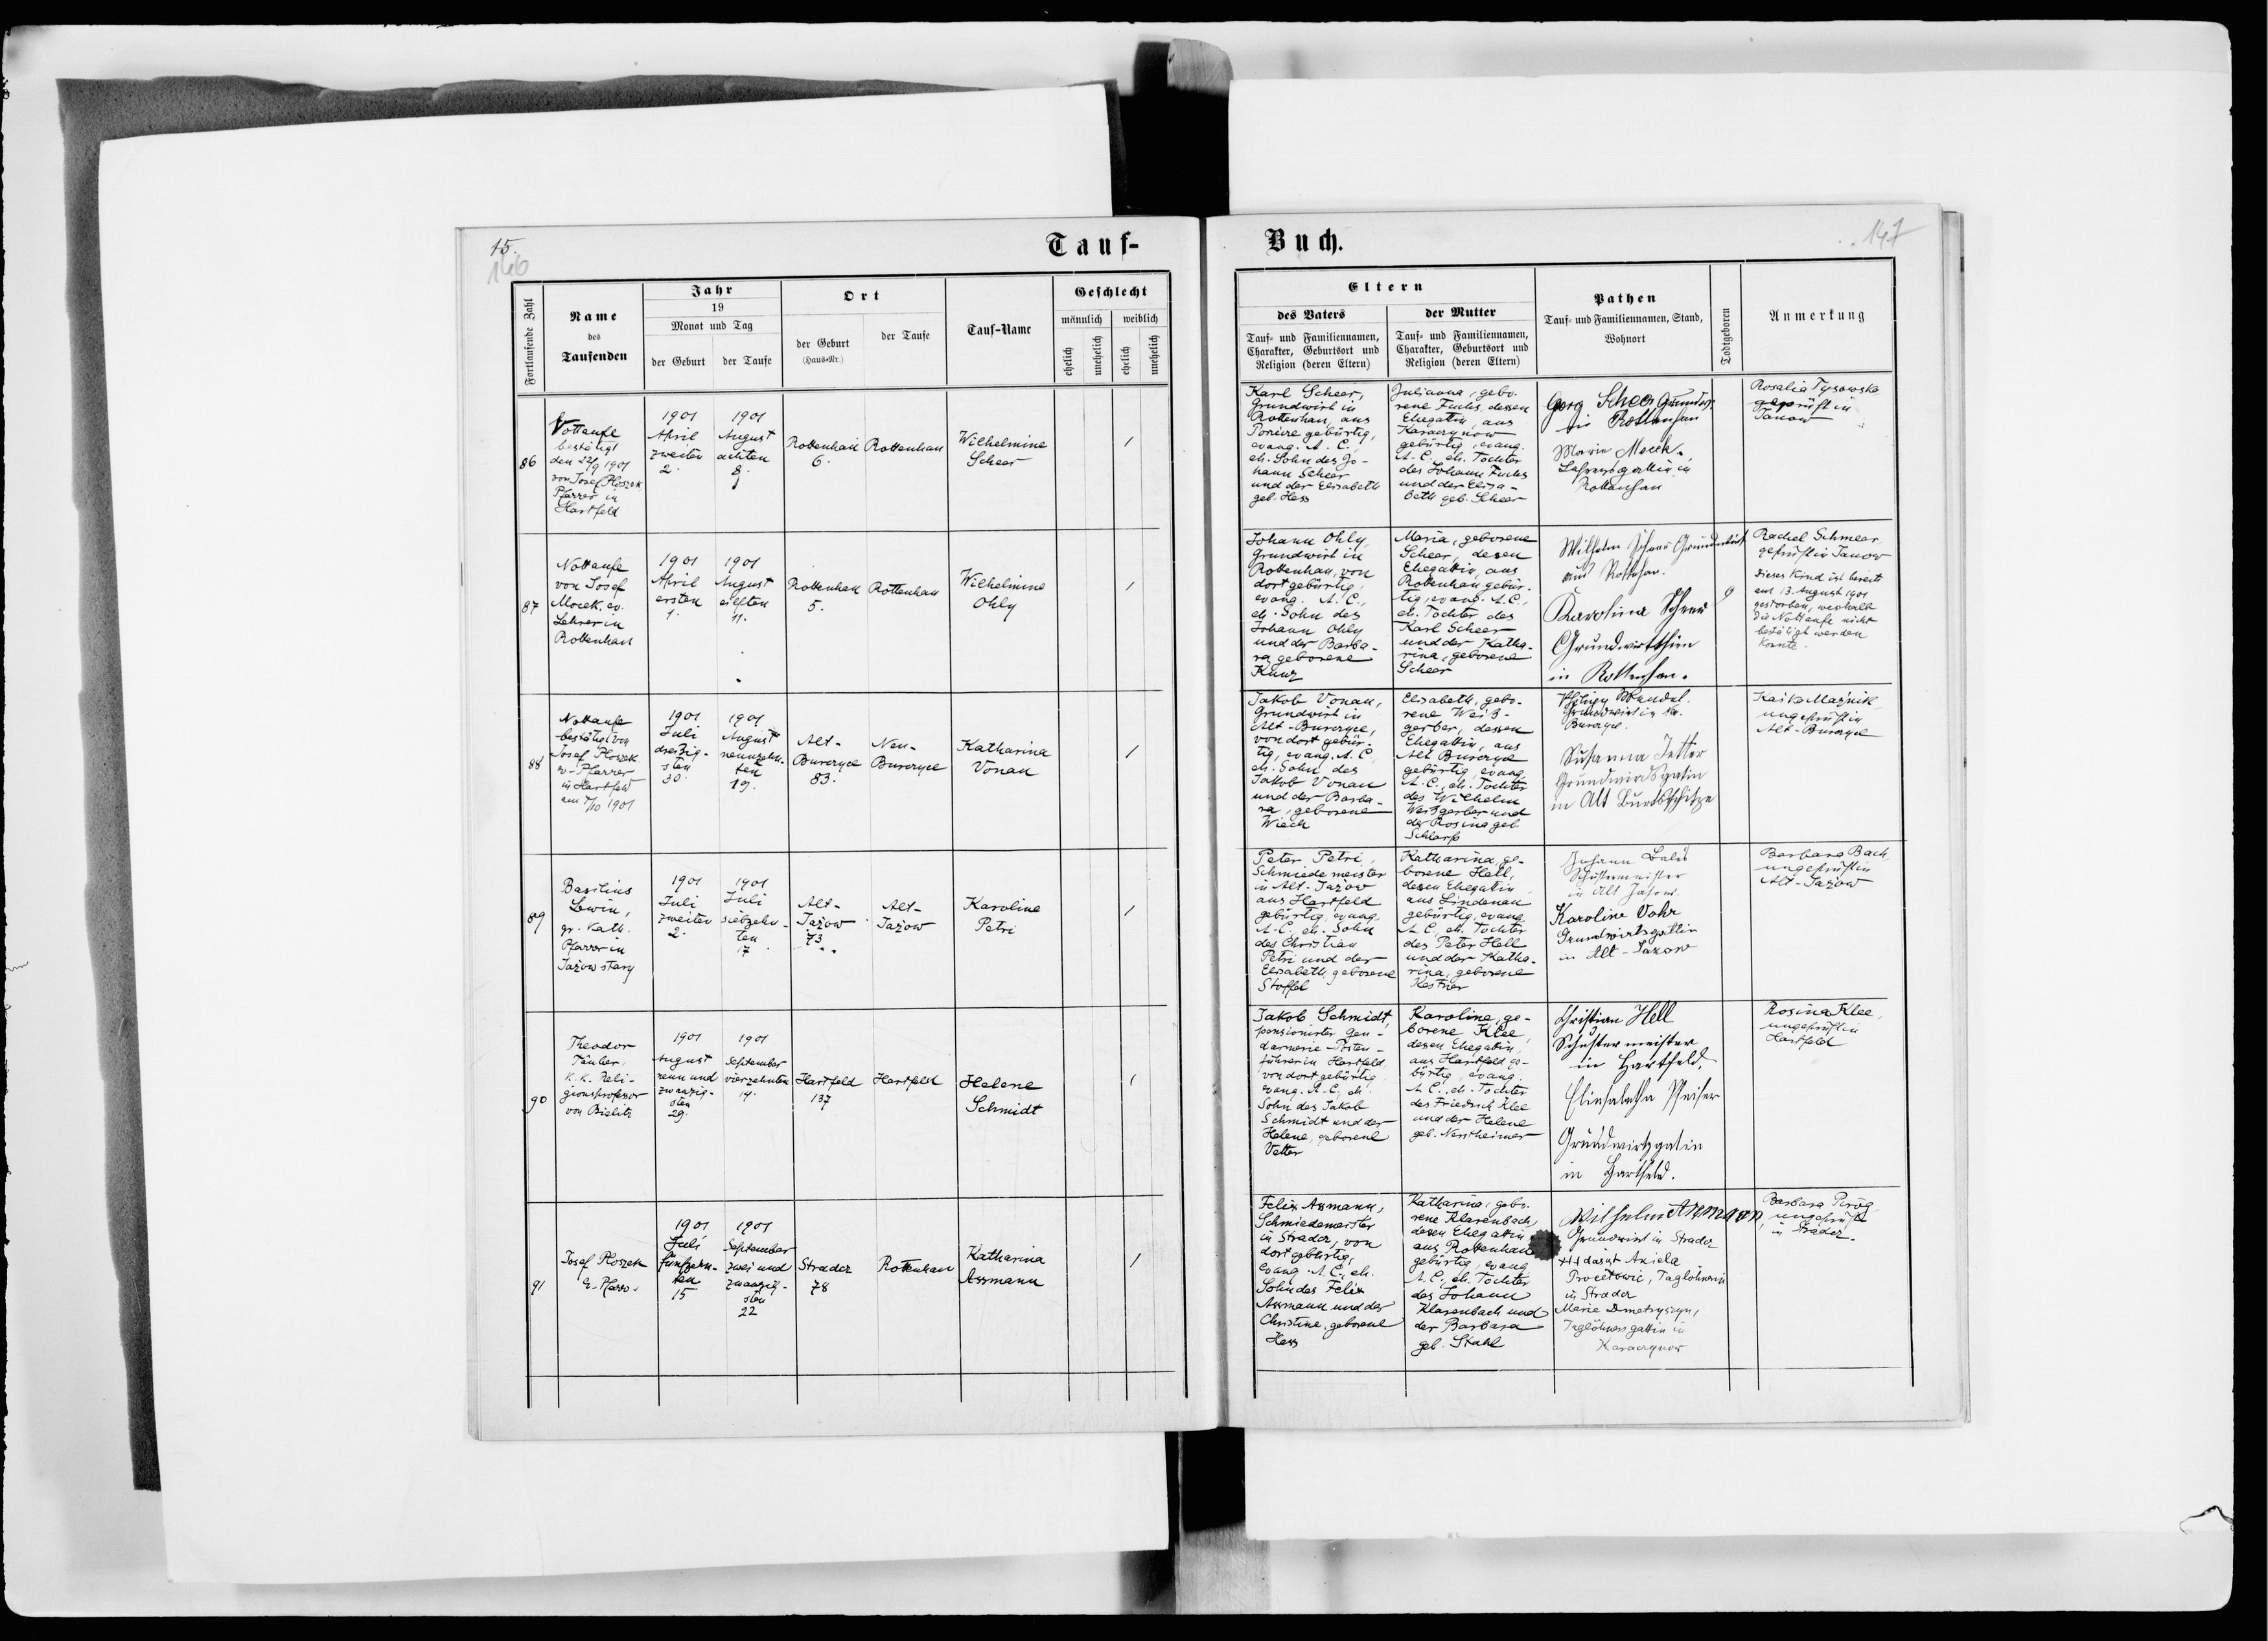 15.
146
Tauf-
Fortlaufende Zahl
Name
des
Taufenden
Jahr
19
Monat und Tag
der Geburt
der Taufe
Ort
der Geburt
(Haus-Nr.)
der Taufe
Tauf-Name
Geschlecht
männlich
weiblich
ehelich
unehelich
ehelich
unehelich
86
Nottaufe
bestätigt
den 22/9 1901
von Josef Ploszek
Pfarrer in
Hartfeld
1901
April
zweiten
2.
1901
August
achten
8.
Rottenhan
6.
Rottenhan
Wilhelmine
Scheer
/
87
Nottaufe
von Josef
Mocek, ev.
Lehrer in
Rottenhan
1901
April
ersten
1.
1901
August
eilften
11.
Rottenhan
5.
Rottenhan
Wilhelmine
Ohly
/
88
Nottaufe
bestätigt von
Josef Ploszek
ev-Pfarrer
in Hartfeld
am 7/10 1901
1901
Juli
dreißig-
sten
30.
1901
August
neunzehn-
ten
19.
Alt-
Burczyce
83.
Neu-
Burczyce
Katharina
Vonau
/
89
Basilius
Lewin,
gr. Kath.
Pfarrer in
Jazow stary
1901
Juli
zweiten
2.
1901
Juli
siebzehn-
ten
17
Alt-
Jazow
73
Alt-
Jazow
Karoline
Petri
/
90
Theodor
Täuber,
k. k. Reli-
gionsprofessor
von Bielitz
1901
August
neun und
zwanzig-
sten
29.
1901
September
vierzehnten
14.
Hartfeld
137
Hartfeld
Helene
Schmidt
/
91
Josef Ploszek
E-Pfarr.
1901
Juli
fünfzehn-
ten
15
1901
September
zwei und
zwanzig-
sten
22
Stradcz
78
Rottenhan
Katharina
Assmann
/
Buch.
147
Eltern
des Vaters
Tauf- und Familiennamen,
Charakter, Geburtsort und
Religion (deren Eltern)
der Mutter
Tauf- und Familiennamen,
Charakter, Geburtsort und
Religion (deren Eltern)
Pathen
Tauf- und Familiennamen, Stand,
Wohnort
Todtgeboren
Anmerkung
Karl Scheer,
Grundwirt in
Rottenhan, aus
gebürtig,
evang. A. C.,
eh. Sohn des Jo-
hann Scheer
und der Elisabeth
geb. Hess
Julianna, gebo-
rene Fuchs, dessen
Ehegattin, aus
Karaczynow
gebürtig, evang.
A. C., eh. Tochter
des Johann Fuchs
und der Elisa-
beth geb. Scheer
Georg Scheer Grundw.
in Rottenhan
Marie Mocek,
Lehrersgattin in
Rottenhan
Rosalia Tysowska
geprüft in
Janow
Johann Ohly,
Grundwirt in
Rottenhan, von
dort gebürtig,
evang. A. C.,
eh. Sohn des
Johann Ohly
und der Barba-
ra geborene
Kunz
Maria, geborene
Scheer, dessen
Ehegattin, aus
Rottenhan gebür-
tig, evang. A. C.,
eh. Tochter des
Karl Scheer
und der Katha-
rina, geborene
Scheer
Wilhelm Scheer Grundwirt
aus Rottenhan.
Karolina Scheer
Grundwirthin
in Rottenhan.
Rachel Schmeer
geprüft in Janow
Dieses Kind ist bereits
am 13. August 1901
gestorben, weshalb
die Nottaufe nicht
bestätigt werden
konnte.
Jakob Vonau,
Grundwirt in
Alt-Burczyce,
von dort gebür-
tig, evang. A. C.,
eh. Sohn des
Jakob Vonau
und der Barba-
ra, geborene
Wiech
Elisabeth, gebo-
rene Weiß-
gerber, dessen
Ehegattin, aus
Alt Burczyce
gebürtig, evang.
A. C., eh. Tochter
des Wilhelm
Weißgerber und
der Rosina geb.
Philipp Wendel
Grundwirt in
Burczyce.
Susanna Jetter
Grundwirdsgatin
in Alt Burdschitze
Kaśka Maźnik
ungeprüft in
Alt-Burczyce
Peter Petri,
Schmiedemeister
in Alt-Jazow
aus Hartfeld
gebürtig, evang.
A. C., eh. Sohn
des Christian
Petri und der
Elisabeth, geborene
Stoffel
Katharina, ge-
borene Hell,
dessen Ehegattin
aus Lindenau
gebürtig, evang.
A. C., eh. Tochter
des Peter Hell
und der Katha-
rina, geborene
Johann
Schustermeister
in Alt Jazow.
Karoline Vohr
Grundwirtsgattin
in Alt-Jazow
Barbara Bach,
ungeprüft in
Alt-Jazow
Jakob Schmidt,
pensionirter Gen-
darmerie-Posten-
führer in Hartfeld
von dort gebürtig,
evang. A. C., eh.
Sohn des Jakob
Schmidt und der
Helene, geborene
Vetter
Karoline, ge-
borene Klee,
dessen Ehegattin,
aus Hartfeld ge-
bürtig, evang.
A. C., eh. Tochter
des Friedrich Klee
und der Helene
geb. Nerstheimer
Christian Hell
Schustermeister
in Hartfeld.
Elisabetha Pfeifer
Grundwirtsgatin
in Hartfeld.
Rosina Klee,
ungeprüft in
Hartfeld
Felix Assmann,
Schmiedemeister
in Stradcz, von
dort gebürtig,
evang. A. C., eh.
Sohn des Felix
Assmann und der
Christine, geborene
Hess
Katharina, gebo-
rene Klarenbach,
dessen Ehegattin
aus Rottenhan
gebürtig, evang.
A. C., eh. Tochter
des Johann
Klarenbach und
der Barbara
geb. Stahl
Wilhelm Assmann
Grundwirt in Stradcz
+++ das ist Aniela
Taglöhnerin
in Stradcz
Marie Dmetryszyn,
Taglöhnersgattin in
Karaczynow
Barbara Piróg
ungeprüft
in Stradcz.